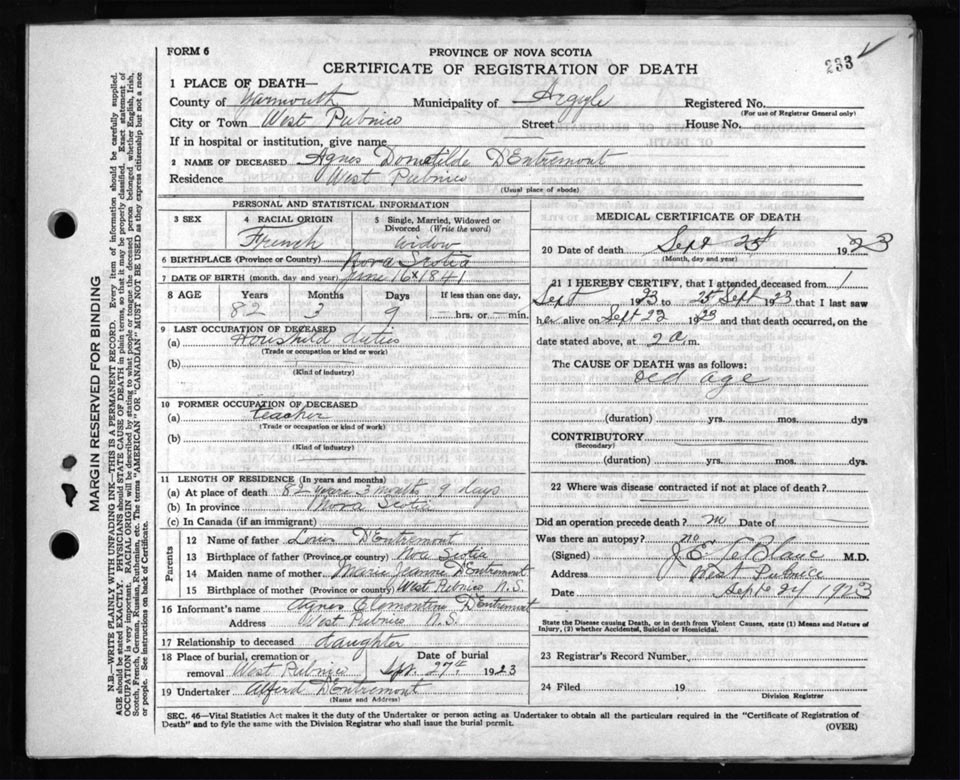 233 ✓
FORM 6
PROVINCE OF NOVA SCOTIA
CERTIFICATE OF REGISTRATION OF DEATH
1 PLACE OF DEATH—
County of Yarmouth Municipality of Argyle Registered No.
(For use of Registrar General only)
City or Town West Pubnico Street House No.
If in hospital or institution, give name
2 NAME OF DECEASED Agnes Domatilde D'Entremont
Residence West Pubnico
(Usual place of abode)
PERSONAL AND STATISTICAL INFORMATION
3 SEX 4 RACIAL ORIGIN 5 Single, Married, Widowed or Divorced (Write the word)
French widow
6 BIRTHPLACE (Province or Country) Nova Scotia
7 DATE OF BIRTH (month, day and year) June 16 1841
8 AGE Years Months Days If less than one day,
82 3 9 — hrs. or — min.
9 LAST OCCUPATION OF DECEASED
(a) Houshild duties
(Trade or occupation or kind or work)
(b)
(Kind of industry)
10 FORMER OCCUPATION OF DECEASED
(a) teacher
(Trade or occupation or kind of work)
(b)
(Kind of industry)
11 LENGTH OF RESIDENCE (In years and months)
(a) At place of death 82 years 3 months 9 days
(b) In province Nova Scotia
(c) In Canada (if an immigrant)
Parents
12 Name of father Louis D'Entremont
13 Birthplace of father (Province or country) Nova Scotia
14 Maiden name of mother Marie Jeanne D'Entremont
15 Birthplace of mother (Province or country) West Pubnico N.S.
16 Informant's name Agnes Clemontine D'Entremont
Address West Pubnico N.S.
17 Relationship to deceased daughter
18 Place of burial, cremation or removal West Pubnico Date of burial Sept. 27th 1923
19 Undertaker Alfred D'Entremont
(Name and Address)
MEDICAL CERTIFICATE OF DEATH
20 Date of death Sept 25 1923
(Month, day and year)
21 I HEREBY CERTIFY, that I attended deceased from 1
Sept 1923 to 25 Sept 1923 that I last saw
her alive on Sept 22 1923 and that death occurred, on the
date stated above, at 2 a.m.
The CAUSE OF DEATH was as follows:
Old age
(duration) yrs. mos. dys
CONTRIBUTORY
(Secondary)
(duration) yrs. mos. dys.
22 Where was disease contracted if not at place of death?
Did an operation precede death? no Date of
Was there an autopsy? no
(Signed) J E LeBlanc M.D.
Address West Pubnico
Date Sept 27 1923
State the Disease causing Death, or in death from Violent Causes, state (1) Means and Nature of
Injury, (2) whether Accidental, Suicidal or Homicidal.
23 Registrar's Record Number
24 Filed 19
Division Registrar
SEC. 46—Vital Statistics Act makes it the duty of the Undertaker or person acting as Undertaker to obtain all the particulars required in the "Certificate of Registration of
Death" and to fyle the same with the Division Registrar who shall issue the burial permit.
(OVER)
MARGIN RESERVED FOR BINDING
N.B.—WRITE PLAINLY WITH UNFADING INK—THIS IS A PERMANENT RECORD. Every item of information should be carefully supplied.
AGE should be stated EXACTLY. PHYSICIANS should STATE CAUSE OF DEATH in plain terms, so that it may be properly classified. Exact statement of
OCCUPATION is very important. RACIAL ORIGIN will be described by stating to what people or tongue the deceased person belonged whether English, Irish,
Scotch, French, German, Russian, Ruthenian, etc. The terms "AMERICAN" OR "CANADIAN" MUST NOT BE USED as they express citizenship but not a race
or people. See instructions on back of Certificate.